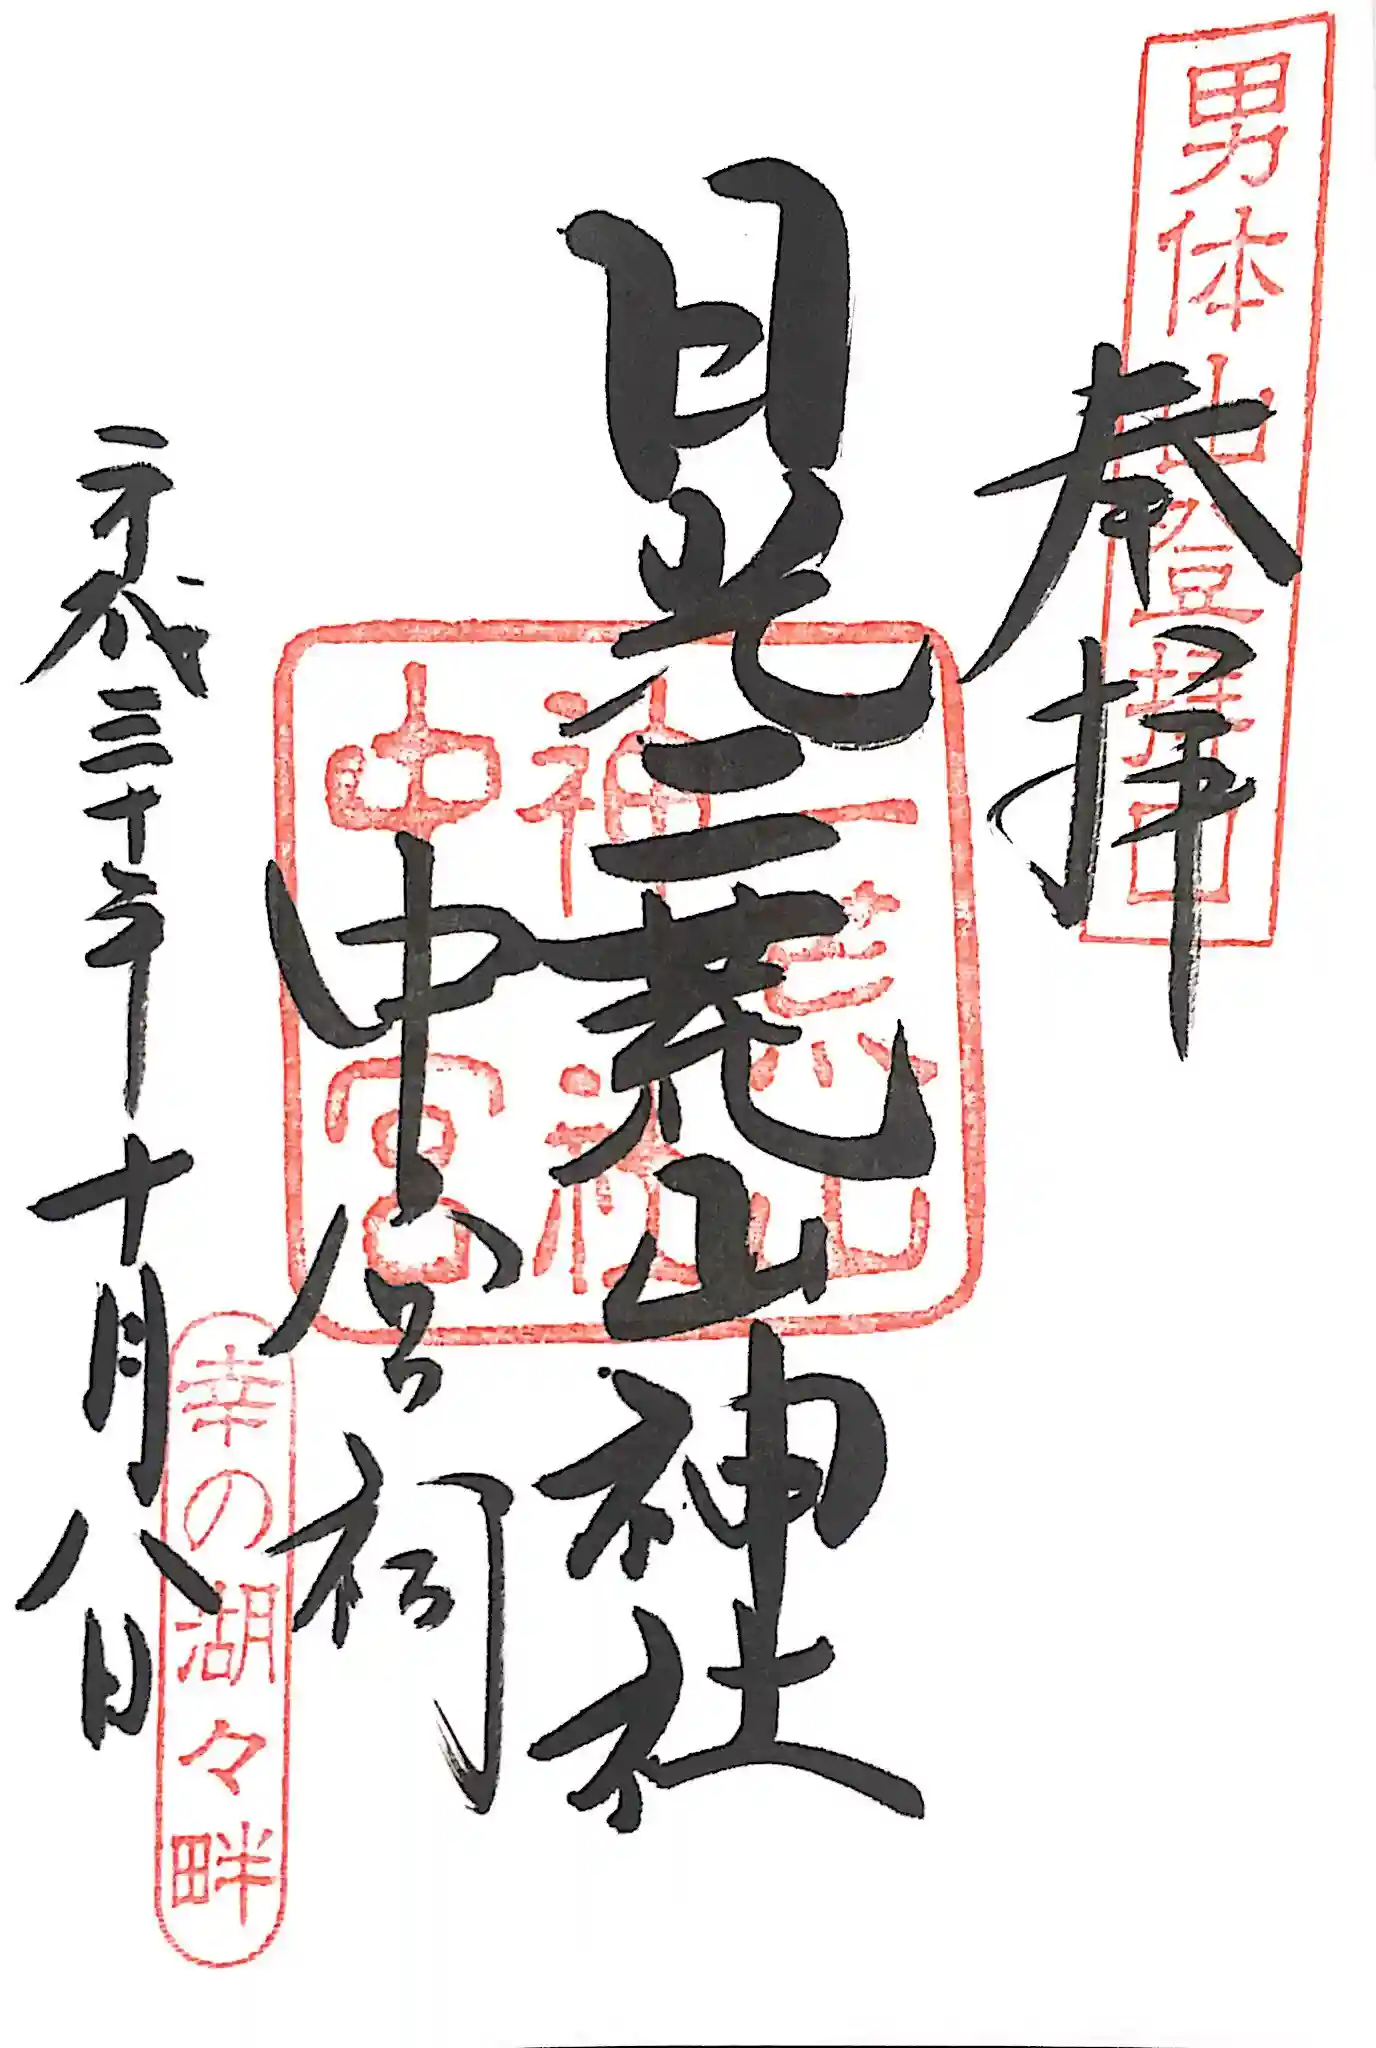 男体山登拝口
奉拝
日光二荒山神社
二荒山
神社
中宮
中宮祠
幸の湖々畔
平成三十年十月八日